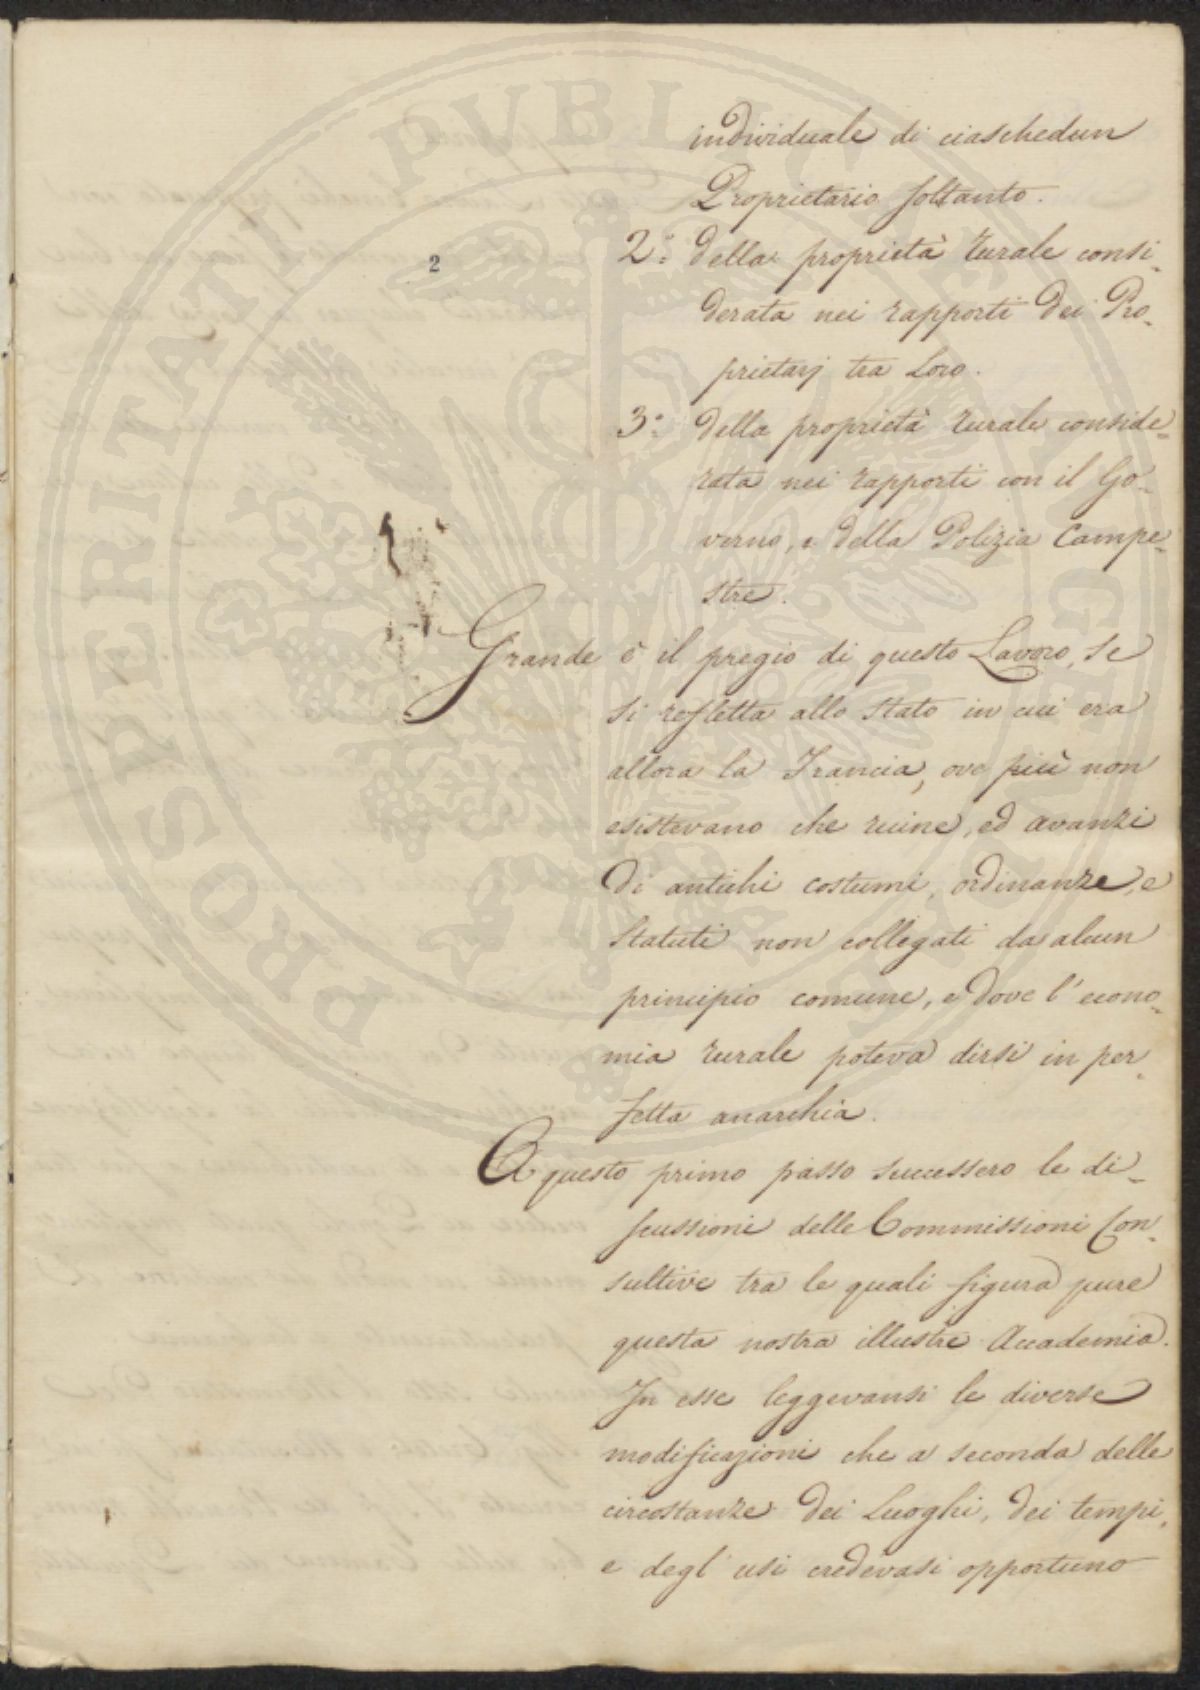 individuale di ciaschedun
Proprietario soltanto.
2
2°. Della proprietà rurale consi-
derata nei rapporti dei Pro-
prietarj tra Loro.
3°. Della proprietà rurale conside-
rata nei rapporti con il Go-
verno, e della Polizia Campe-
stre.
Grande è il pregio di questo Lavoro, se
si refletta allo Stato in cui era
allora la Francia, ove più non
esistevano che ruine, ed avanzi
di antichi costumi, ordinanze, e
Statuti non collegati da alcun
principio comune, e dove l'econo-
mia rurale poteva dirsi in per-
fetta anarchia.
A questo primo passo successero le di-
scussioni delle Commissioni Con-
sultive tra le quali figura pure
questa nostra illustre Accademia.
In esse leggevansi le diverse
modificazioni che a seconda delle
circostanze dei Luoghi, dei tempi,
e degl'usi credevasi opportuno
PROSPERITATI PVBLICAE AVGENDAE